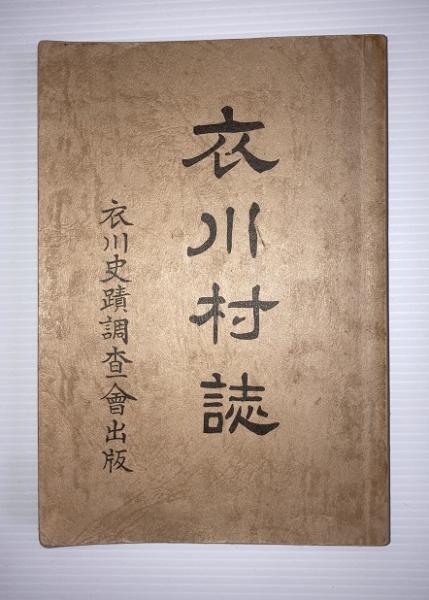 衣川村誌
衣川史蹟調査會出版